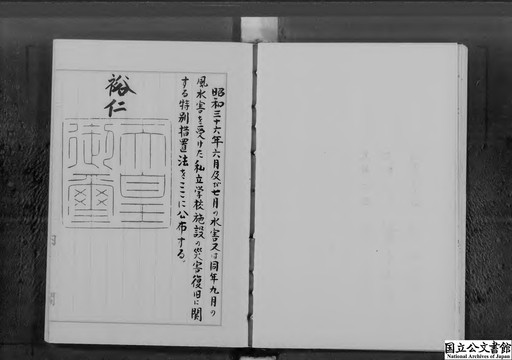 昭和三十六年六月及び七月の水害又は同年九月の
風水害を受けた私立学校施設の災害復旧に関
する特別措置法をここに公布する。
裕仁
天皇
御璽
国立公文書館
National Archives of Japan